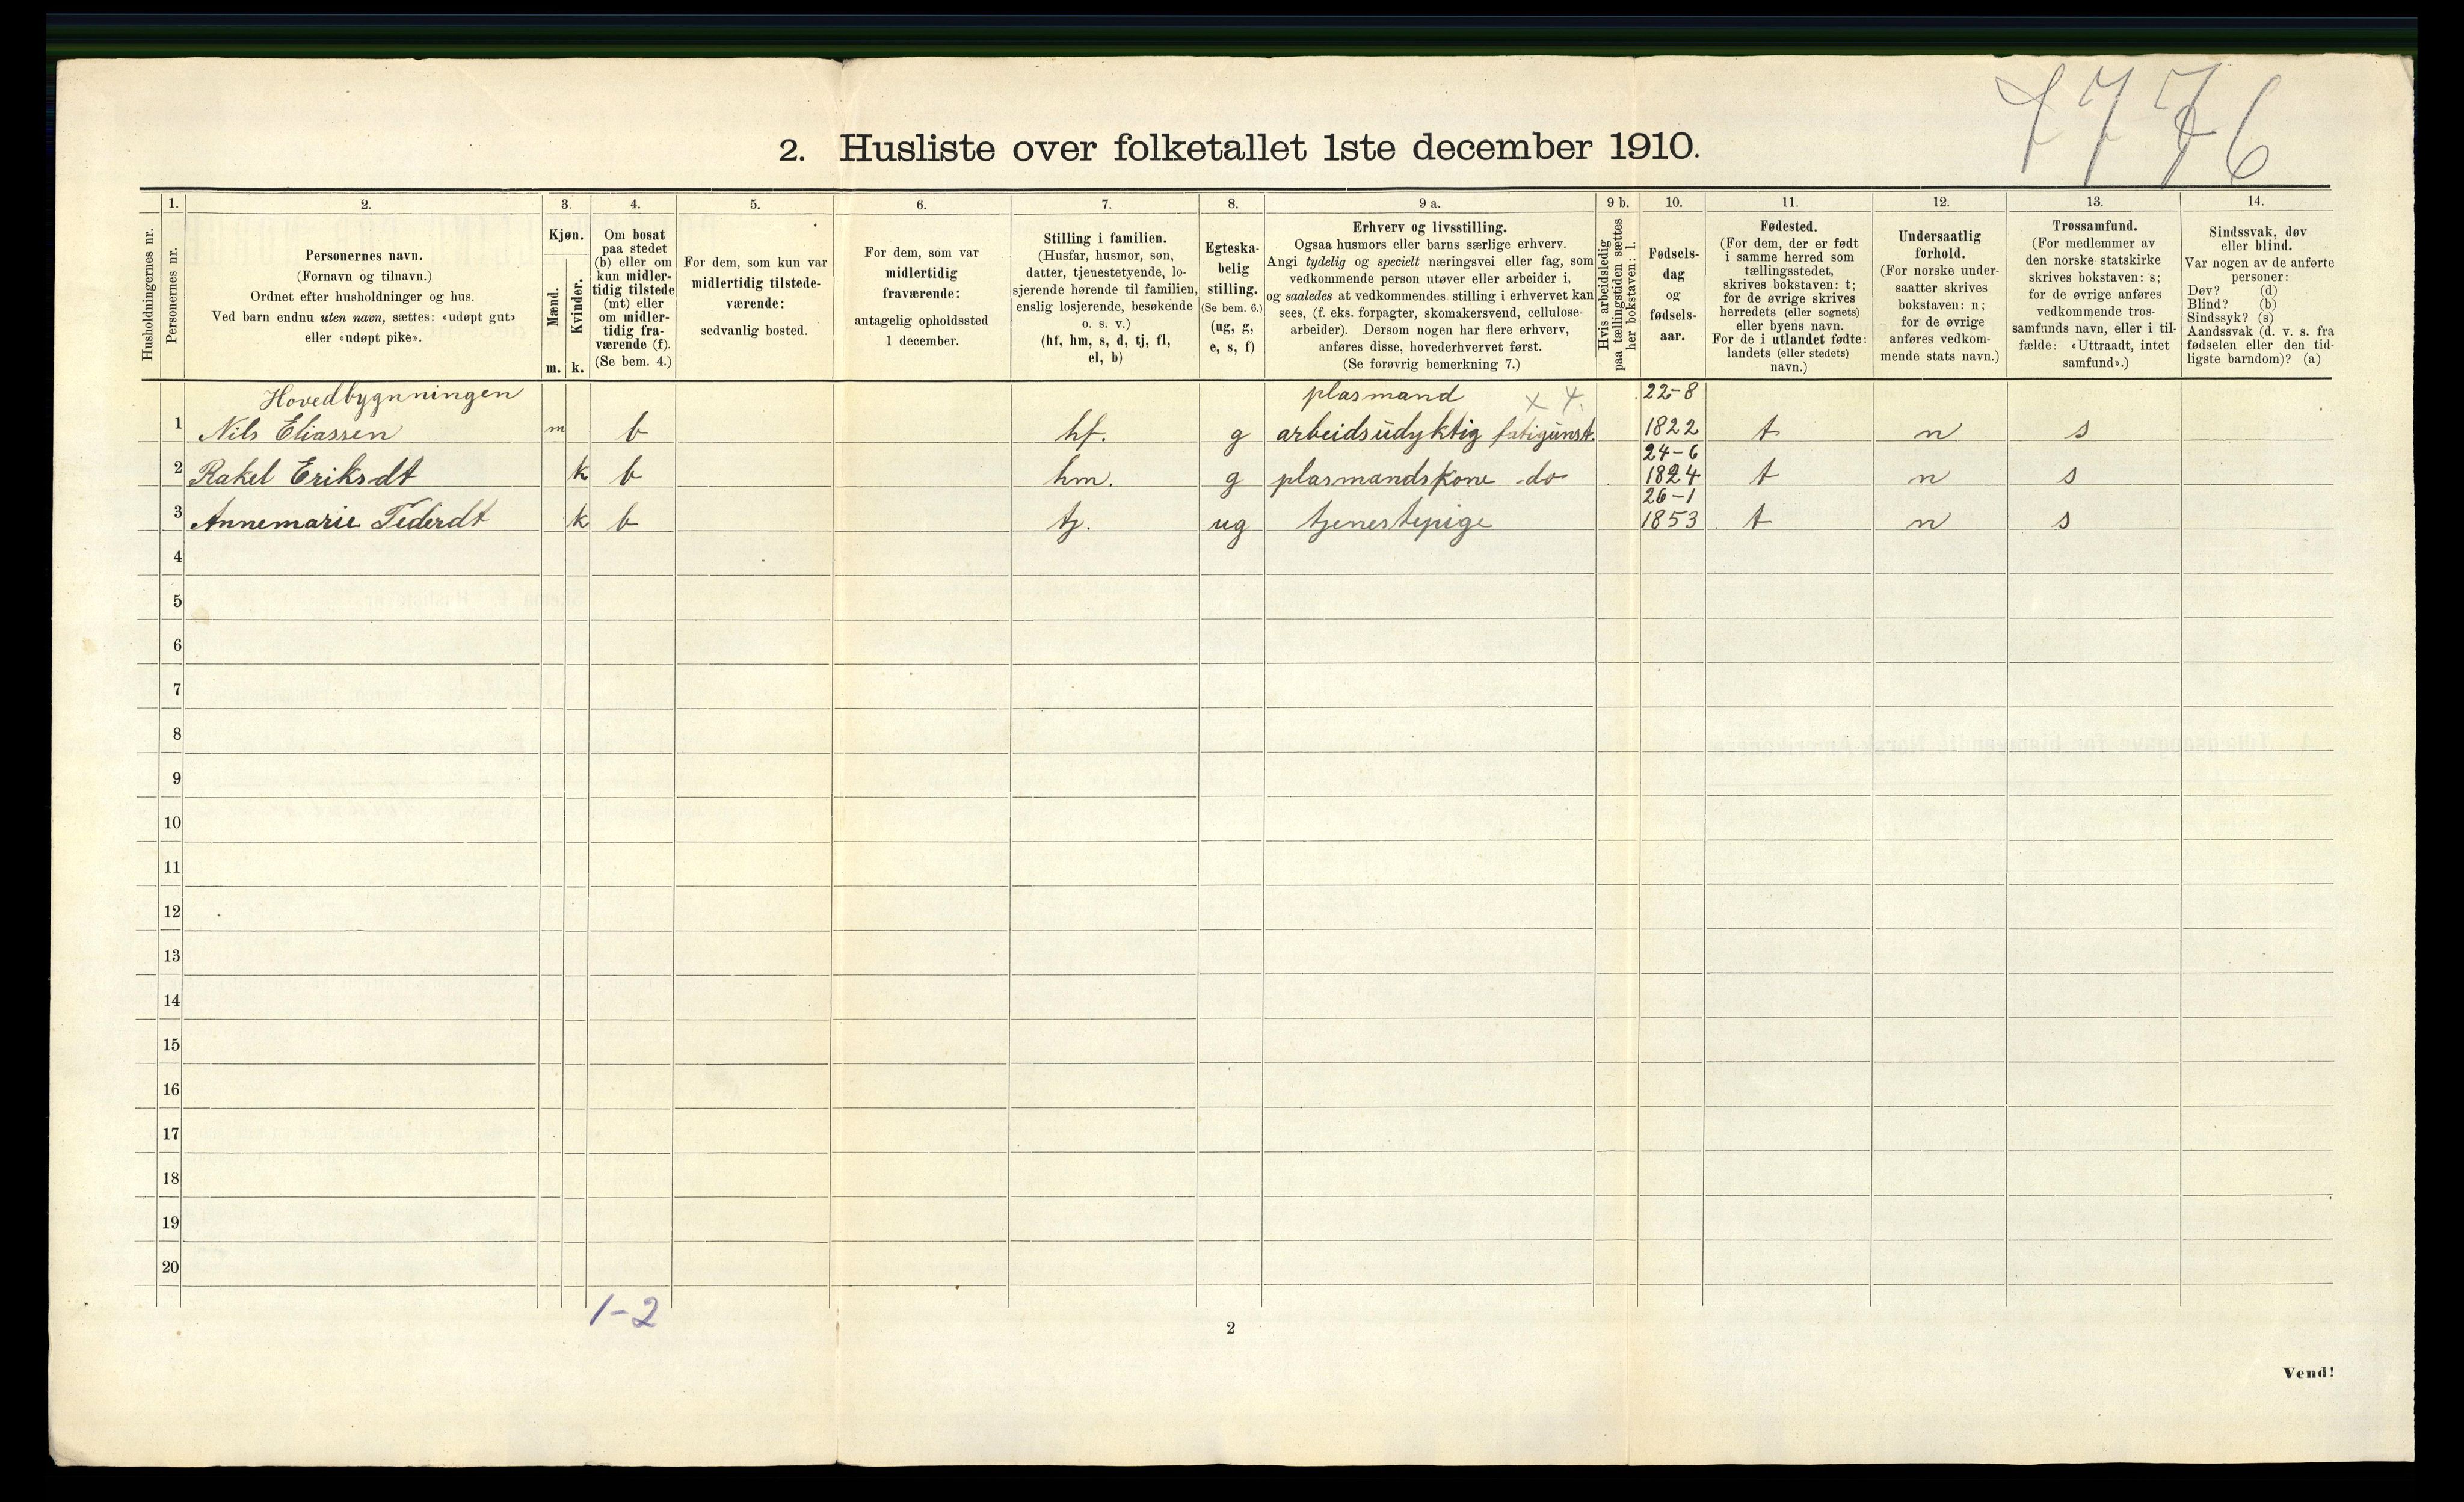 7776
2. Husliste over folketallet 1ste december 1910.
Husholdningernes nr.
1.
Personernes nr.
2.
Personernes navn.
(Fornavn og tilnavn.)
Ordnet efter husholdninger og hus.
Ved barn endnu uten navn, sættes: «udøpt gut»
eller «udøpt pike».
3.
Kjøn.
Mænd.
Kvinder.
m. k.
4.
Om bosat
paa stedet
(b) eller om
kun midler-
tidig tilstede
(mt) eller
om midler-
tidig fra-
værende (f).
(Se bem. 4.)
5.
For dem, som kun var
midlertidig tilstede-
værende:
sedvanlig bosted.
6.
For dem, som var
midlertidig
fraværende:
antagelig opholdssted
1 december.
7.
Stilling i familien.
(Husfar, husmor, søn,
datter, tjenestetyende, lo-
sjerende hørende til familien,
enslig losjerende, besøkende
o. s. v.)
(hf, hm, s, d, tj, fl,
el, b)
8.
Egteska-
belig
stilling.
(Se bem. 6.)
(ug, g,
e, s, f)
9 a.
Erhverv og livsstilling.
Ogsaa husmors eller barns særlige erhverv.
Angi tydelig og specielt næringsvei eller fag, som
vedkommende person utøver eller arbeider i,
og saaledes at vedkommendes stilling i erhvervet kan
sees, (f. eks. forpagter, skomakersvend, cellulose-
arbeider). Dersom nogen har flere erhverv,
anføres disse, hovederhvervet først.
(Se forøvrig bemerkning 7.)
9 b.
Hvis arbeidsledig
paa tællingstiden sættes
her bokstaven: l.
10.
Fødsels-
dag
og
fødsels-
aar.
11.
Fødested.
(For dem, der er født
i samme herred som
tællingsstedet,
skrives bokstaven: t;
for de øvrige skrives
herredets (eller sognets)
eller byens navn.
For de i utlandet fødte:
landets (eller stedets)
navn.)
12.
Undersaatlig
forhold.
(For norske under-
saatter skrives
bokstaven: n;
for de øvrige
anføres vedkom-
mende stats navn.)
13.
Trossamfund.
(For medlemmer av
den norske statskirke
skrives bokstaven: s;
for de øvrige anføres
vedkommende tros-
samfunds navn, eller i til-
fælde: «Uttraadt, intet
samfund».)
14.
Sindssvak, døv
eller blind.
Var nogen av de anførte
personer:
Døv? (d)
Blind? (b)
Sindssyk? (s)
Aandssvak (d. v. s. fra
fødselen eller den tid-
ligste barndom)? (a)
Hovedbygnningen plasmand x 4. 22-8
1 Nils Eliassen m b hf. g arbeidsudyktig fatigunst. 1822 t n s
24-6
2 Rakel Eriksdt k b hm. g plasmandskone do 1824 t n s
26-1
3 Annemarie Pederdt k b tj. ug tjenestepige 1853 t n s
4
5
6
7
8
9
10
11
12
13
14
15
16
17
18
19
20
1-2
2
Vend!